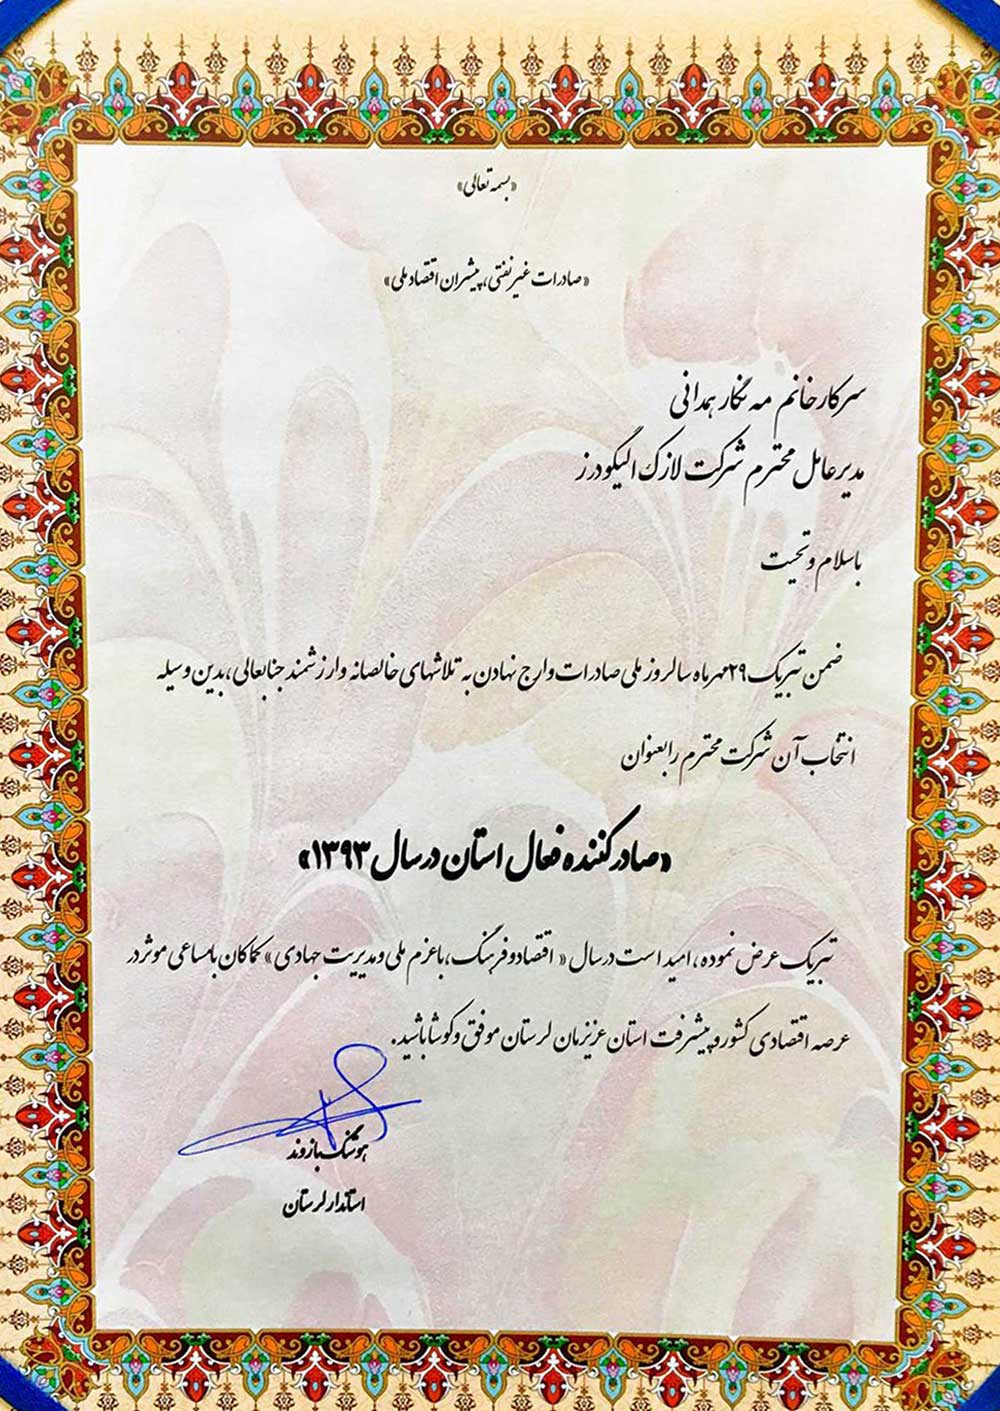 «بسمه تعالی»
«صادرات غیرنفتی، پیشران اقتصاد ملی»
سرکار خانم مه نگار همدانی
مدیرعامل محترم شرکت لازک الیگودرز
باسلام و تحیت
ضمن تبریک ۲۹مهرماه سالروز ملی صادرات وارج نهادن به تلاشهای خالصانه وارزشمند جنابعالی، بدین وسیله
انتخاب آن شرکت محترم رابعنوان
«صادرکننده فعال استان درسال ۱۳۹۳»
تبریک عرض نموده، امید است درسال «اقتصاد و فرهنگ، باعزم ملی و مدیریت جهادی» کماکان بامساعی موثر در
عرصه اقتصادی کشور و پیشرفت استان عزیزمان لرستان موفق و کوشا باشید.
هوشنگ بازوند
استاندار لرستان